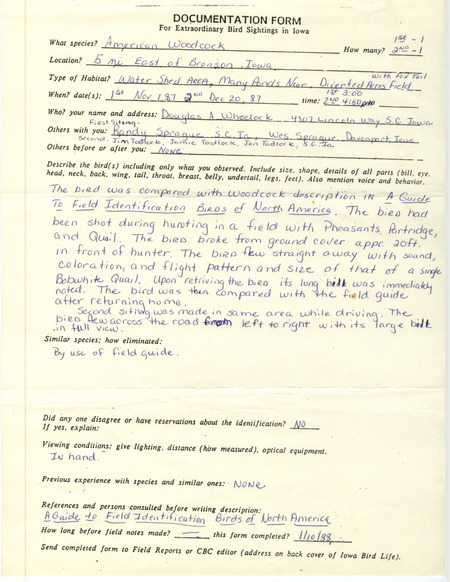 DOCUMENTATION FORM
For Extraordinary Bird Sightings in Iowa
What species? American Woodcock How many? 1st - 1 2nd - 1
Location? 5 mi. East of Bronson, Iowa
Type of Habitat? Water Shed Area, Many Ponds Near, Diverted Acres Field with Fox Tail
When? date(s): 1st Nov 1, 87 2nd Dec 20, 87 time: 1st 3:00 2nd 4:50 pm
Who? your name and address: Douglas A Wheelock 4307 Lincoln Way S.C. Iowa
First Siting.
Others with you: Randy Sprague S.C. Ia, Wes Sprague, Davenport, Iowa
Second, Jim Tadlock, Jamie Tadlock, Jon Tadlock, S.C. Ia
Others before or after you: None
Describe the bird(s) including only what you observed. Include size, shape, details of all parts (bill, eye,
head, neck, back, wing, tail, throat, breast, belly, undertail, legs, feet). Also mention voice and behavior.
The bird was compared with Woodcock description in A Guide
To Field Identification Birds of North America. The bird had
been shot during hunting in a field with Pheasants, Partridge,
and Quail. The bird broke from ground cover appr. 20ft.
in front of hunter. The bird flew straight away with sound,
coloration, and flight pattern and size of that of a single
Bobwhite Quail. Upon retiving the bird its long bill was immediately
noted. The bird was then compared with the field guide
after returning home.
Second siting was made in same area while driving. The
bird flew across the road from left to right with its large bill
in full view.
Similar species; how eliminated:
By use of field guide.
Did any one disagree or have reservations about the identification? NO
If yes, explain:
Viewing conditions: give lighting, distance (how measured), optical equipment.
In hand.
Previous experience with species and similar ones: NONE
References and persons consulted before writing description:
A Guide to Field Identification Birds of North America
How long before field notes made? this form completed? 1/10/88
Send completed form to Field Reports or CBC editor (address on back cover of Iowa Bird Life).